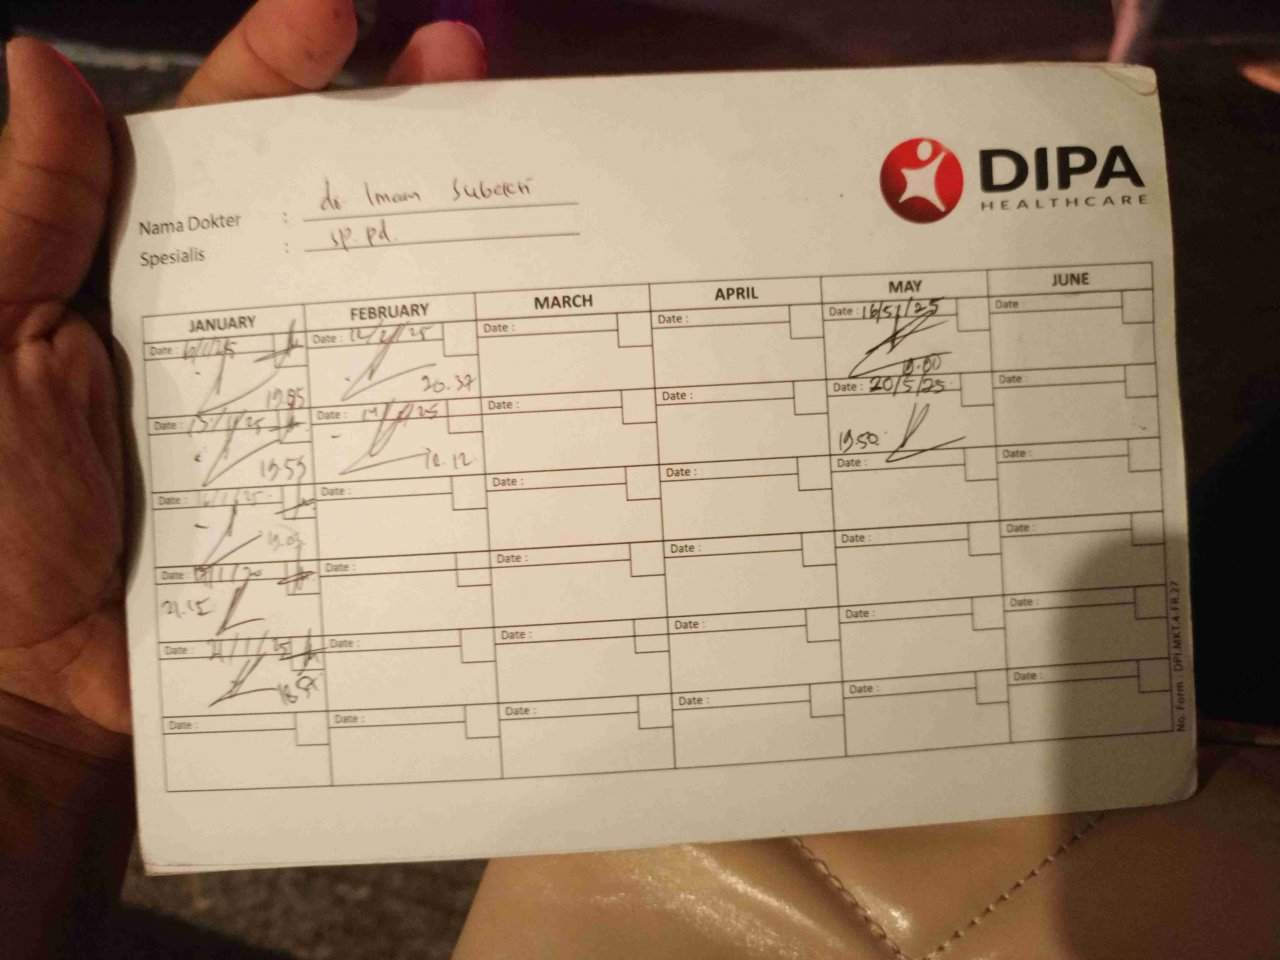 DIPA
HEALTHCARE
Nama Dokter : dr Imam Subekti
Spesialis : sp. pd.
JANUARY FEBRUARY MARCH APRIL MAY JUNE
Date : Date : 12/2/25 Date : Date : Date : 16/5/25 Date :
19.55 20.37 19.00
Date : 15/1/25 Date : 14/2/25 Date : Date : Date : 20/5/25 Date :
19.53 19.50
Date : Date : Date : Date : Date : Date :
19.03
Date : Date : Date : Date : Date : Date :
21.15
Date : 21/1/25 Date : Date : Date : Date : Date :
Date : Date : Date : Date : Date : Date :
No. Form : DPI.MKT.4.FR.27